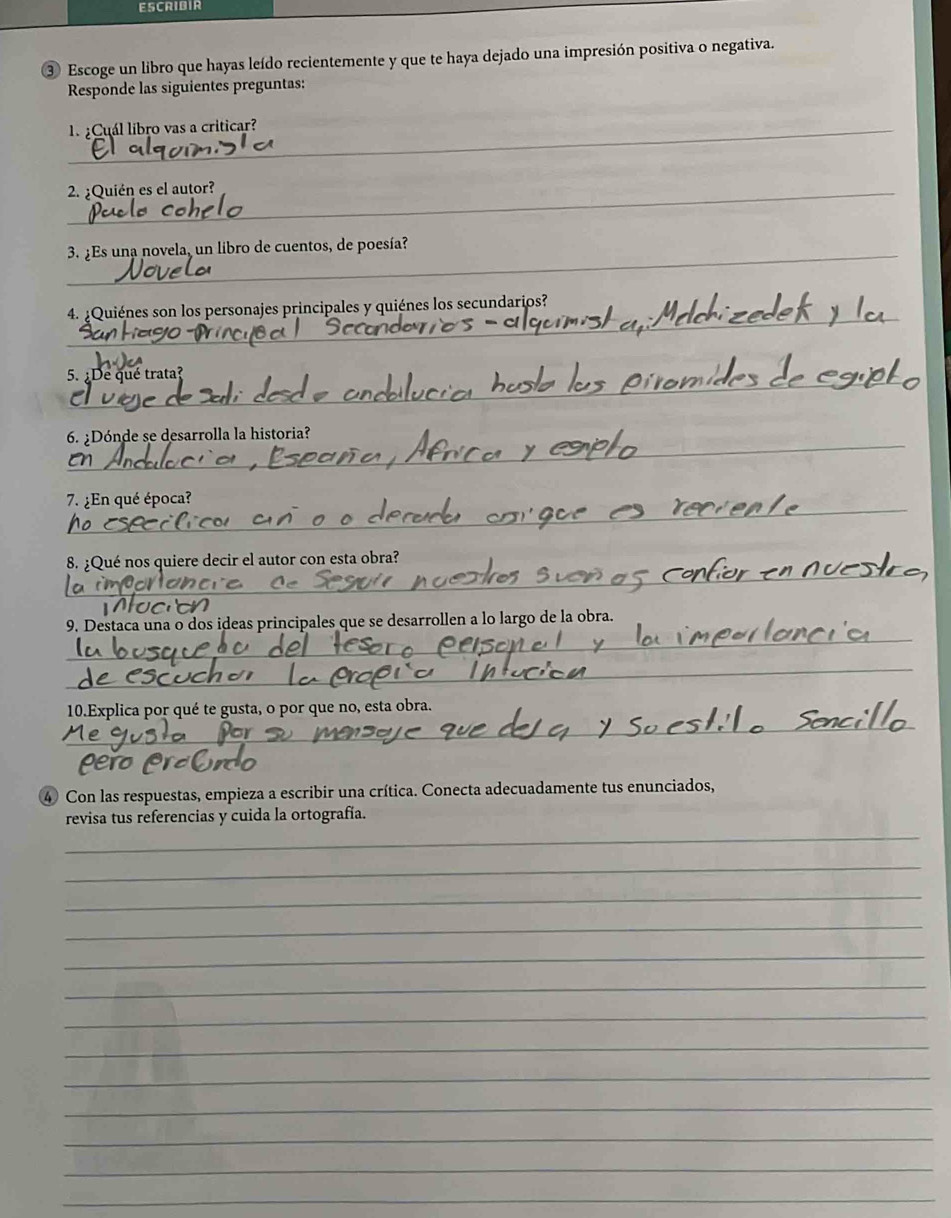 ESCRIBIR
3 Escoge un libro que hayas leído recientemente y que te haya dejado una impresión positiva o negativa.
Responde las siguientes preguntas:
1. ¿Cuál libro vas a criticar?
El alquimista
2. ¿Quién es el autor?
Paulo cohelo
3. ¿Es una novela, un libro de cuentos, de poesía?
Novela
4. ¿Quiénes son los personajes principales y quiénes los secundarios?
Santiago-principal Secondarios - alquimista, Melchizedek y la
hija
5. ¿De qué trata?
el viaje de desde andalucia hasta las piramides de egipto
6. ¿Dónde se desarrolla la historia?
en Andalucia, España, Africa y egipto
7. ¿En qué época?
no especifica año o decada es reciente
8. ¿Qué nos quiere decir el autor con esta obra?
la importancia de seguir nuestros sueños confior en nuestra
intucion
9. Destaca una o dos ideas principales que se desarrollen a lo largo de la obra.
la busqueda del tesoro personal y la importancia
de escuchar la propia intucion
10.Explica por qué te gusta, o por que no, esta obra.
Me gusta por su mensaje que deja y su estilo sencillo
pero profundo
4 Con las respuestas, empieza a escribir una crítica. Conecta adecuadamente tus enunciados,
revisa tus referencias y cuida la ortografía.